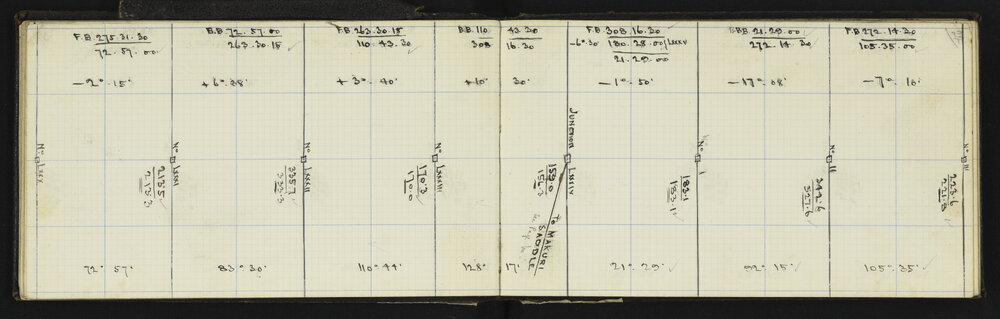 F.B. 275.31.30
72.57.00
B.B. 72.57.00
263.30.15
F.B. 263.30.15
110.43.30
B.B. 110 43.30
308 16.30
F.B. 308.16.30
-6°.30' 180.28.00/LXXXV
21.29.00
B.B. 21.29.00
272.14.30
F.B. 272.14.30
105.35.00
-2°.15'
+6°.08'
+3°.40'
+10° 30'
-1°.50'
-17°.08'
-7°.10'
No LXXX
213.5
213.3
No LXXXI
335.7
333.3
No LXXXII
170.3
170.0
No LXXXIII
159.0
156.3
JUNCTION LXXXIV
To MAKURI
SADDLE
183.1
183.1
No I
342.6
327.6
No II
223.6
221.8
No III
72°.57'
83°.30'
110°.44'
128° 17'
21°.29'
92°.15'
105°.35'